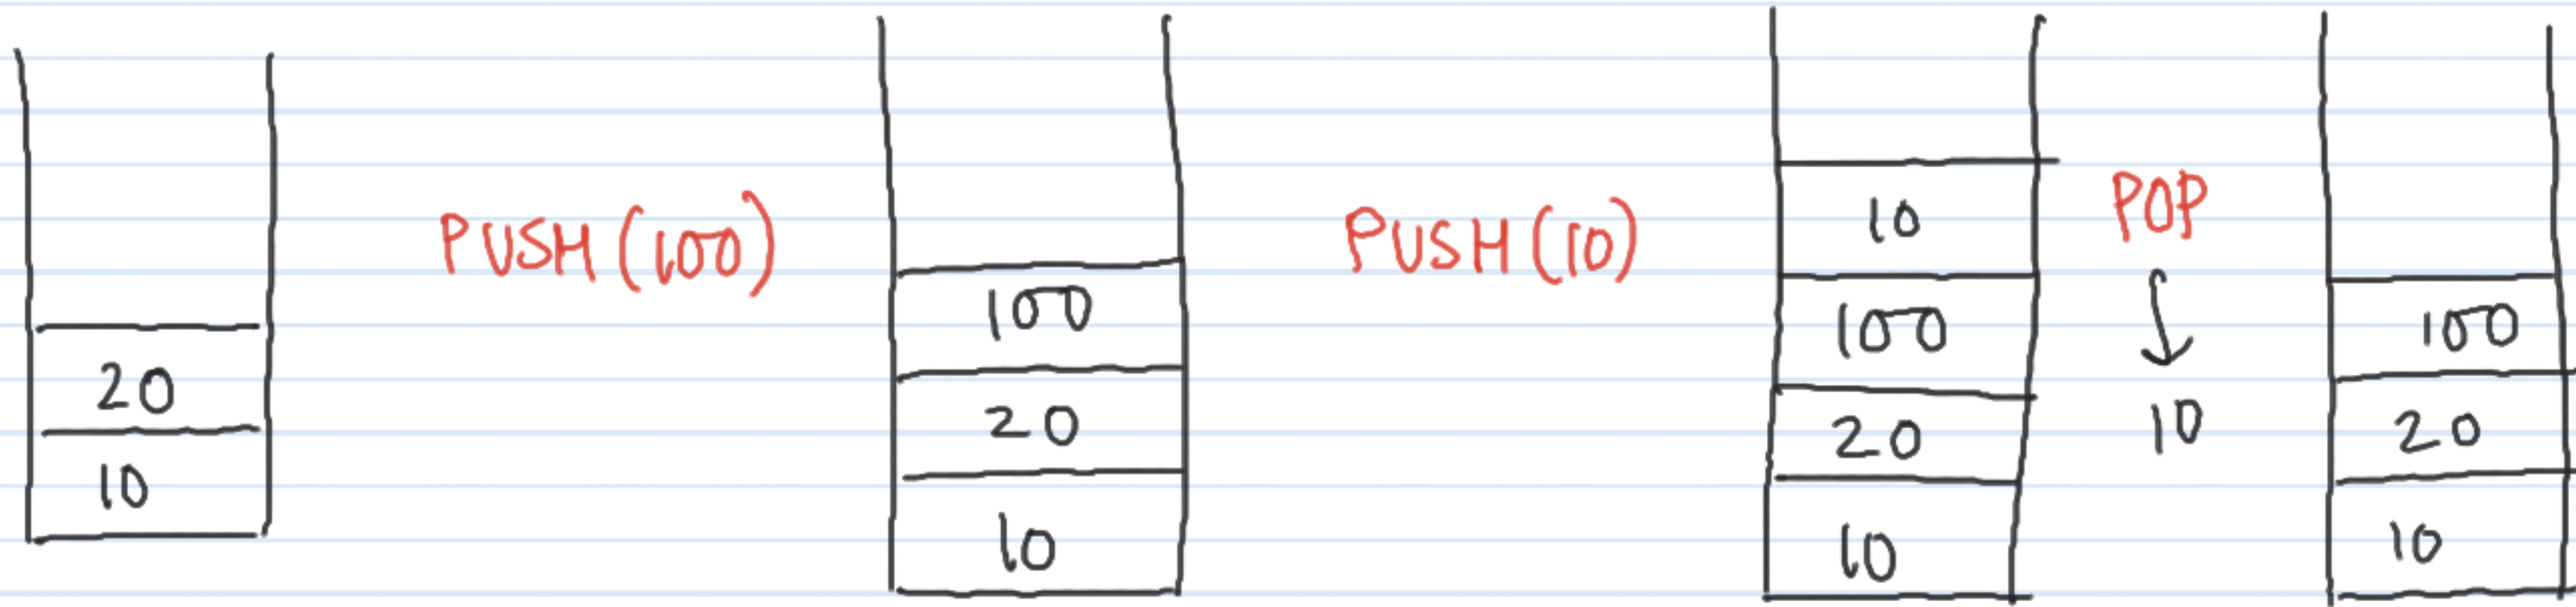 20
10
PUSH(100)
100
20
10
PUSH(10)
10
100
20
10
POP
10
100
20
10